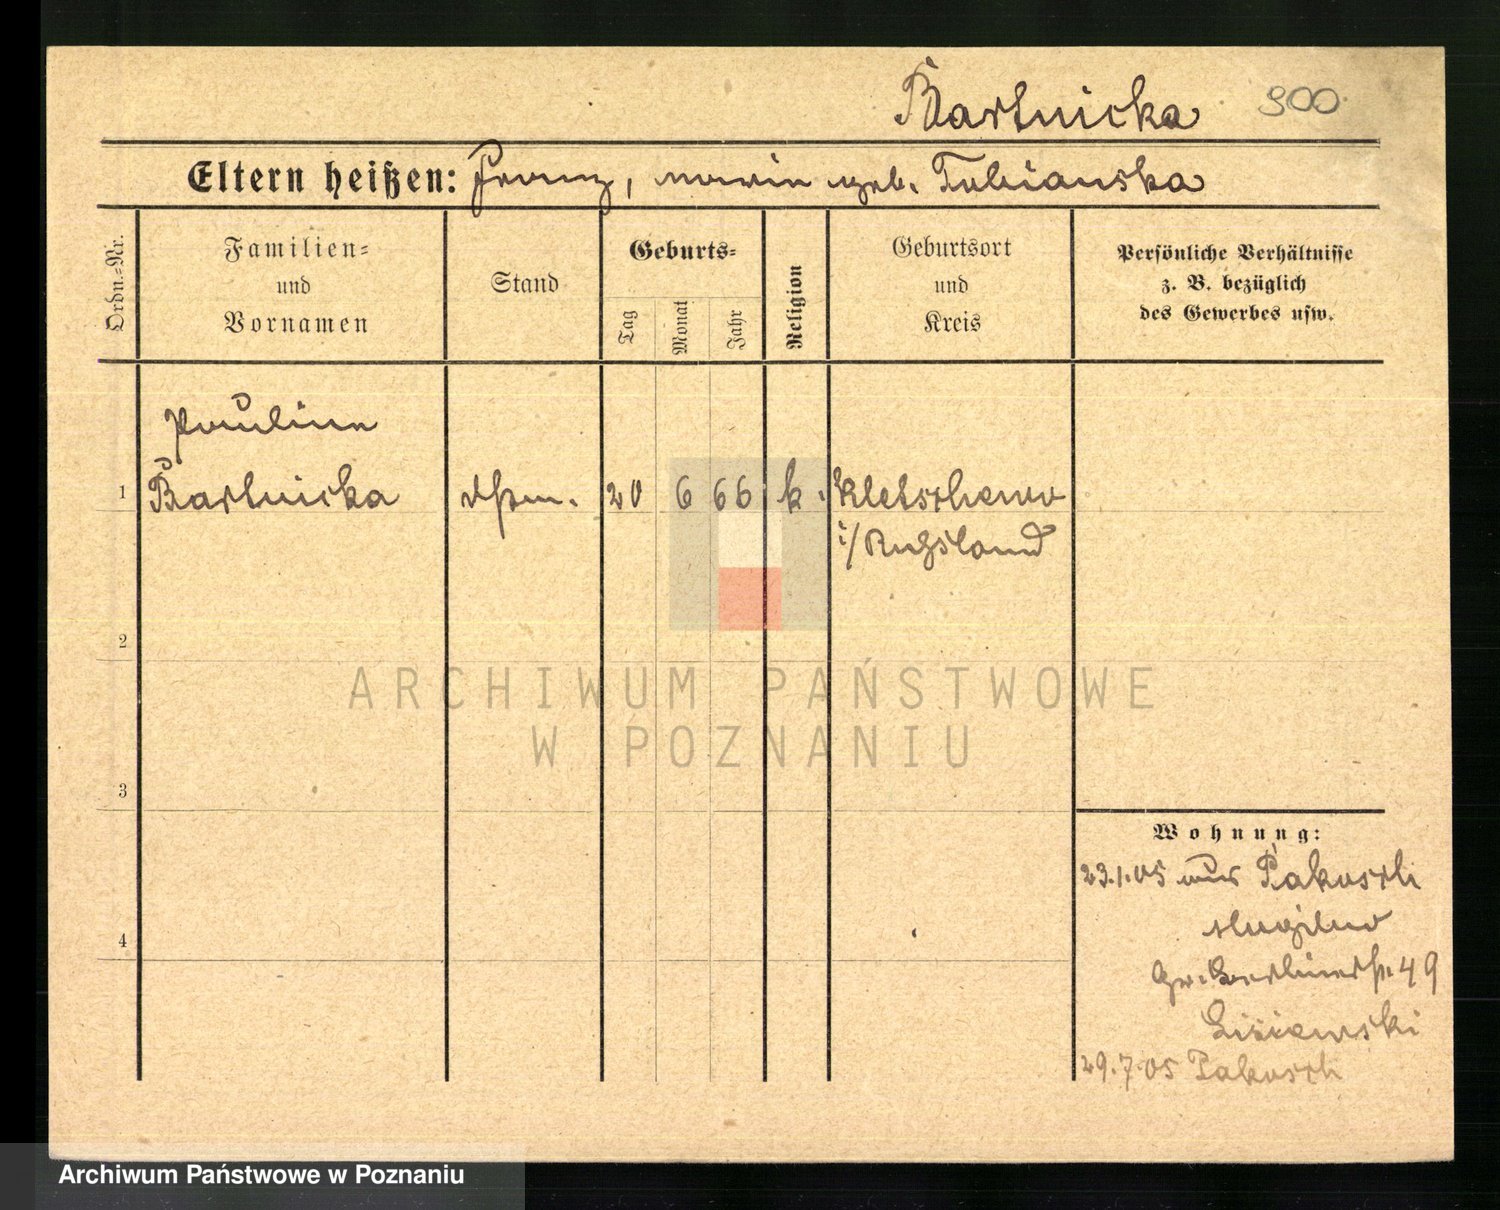 Bartnicka 900
Eltern heißen: Franz, Marie geb. Tobianska
Ordn.=Nr.
Familien=
und
Vornamen
Stand
Geburts=
Tag
Monat
Jahr
Religion
Geburtsort
und
Kreis
Persönliche Verhältnisse
z. B. bezüglich
des Gewerbes usw.
Pauline
1 Bartnicka 20 6 66 k. Kletschewo
i/ Rußland
2
ARCHIWUM PAŃSTWOWE
W POZNANIU
3
Wohnung:
23.1.05 aus Pakosch
Mogilno
Gr. Berlinerstr. 49
4
Lisiewski
29.7.05 Pakosch
Archiwum Państwowe w Poznaniu